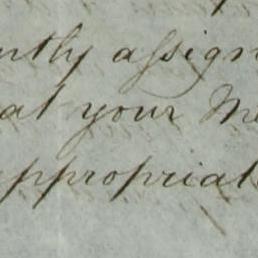 ntly assign
at your M
appropriat